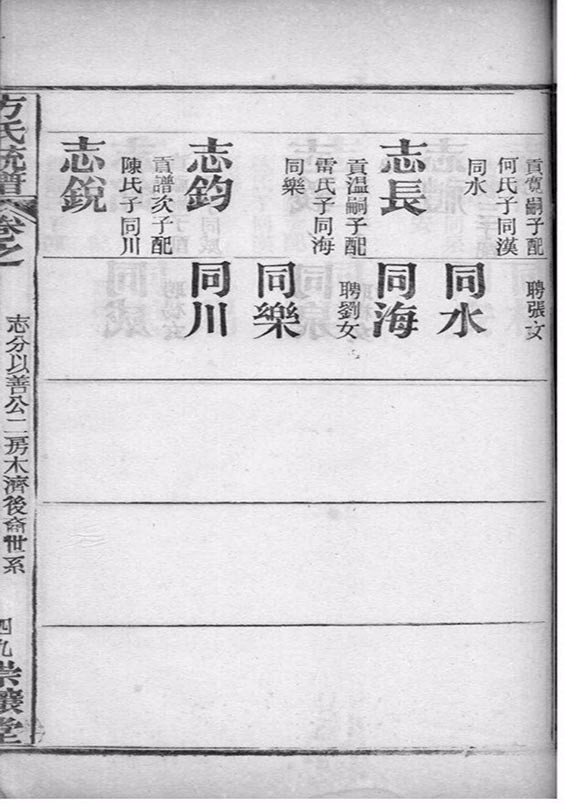 貢寬嗣子配
何氏子同漢
同水
志長
貢温嗣子配
雷氏子同海
同樂
志鈞
貢譜次子配
陳氏子同川
志銳
聘張女
同水
同海
聘劉女
同樂
同川
方氏統譜
卷之一
志分以善公二房木濟後裔世系
四九
崇讓堂